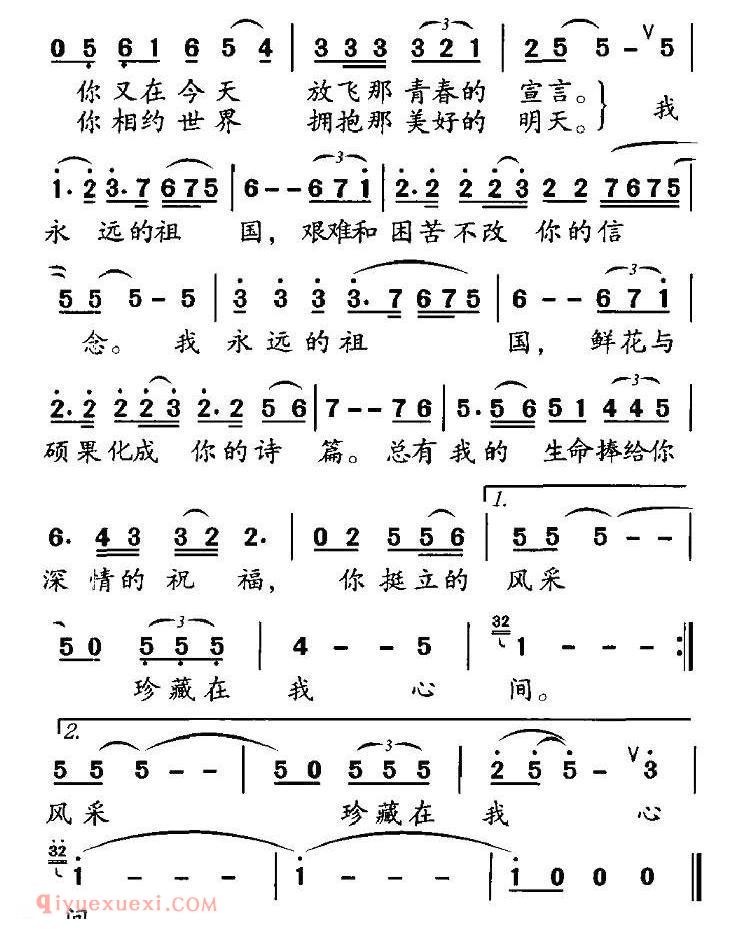 0 5 6 1 6 5 4 | 3 3 3 3 3 2 1 | 2 5 5 - ∨ 5 |
你又在今天 放飞那青春的 宣言。
你相约世界 拥抱那美好的 明天。} 我
1. 2 3. 7 6 7 5 | 6 - - 6 7 1 | 2. 2 2 2 3 2 2 7 6 7 5 |
永 远的祖 国，艰难和困苦不改 你的信
5 5 5 - 5 | 3 3 3 3. 7 6 7 5 | 6 - - 6 7 1 |
念。 我 永远的祖 国，鲜花与
2. 2 2 2 3 2. 2 5 6 | 7 - - 7 6 | 5. 5 6 5 1 4 4 5 |
硕果化成 你的诗 篇。总有我的 生命捧给你
1.
6. 4 3 3 2 2. | 0 2 5 5 6 | 5 5 5 - - |
深 情的祝 福， 你挺立的 风采
5 0 5 5 5 | 4 - - 5 | 32 1 - - - :||
珍藏在 我 心 间。
2.
5 5 5 - - | 5 0 5 5 5 | 2 5 5 - ∨ 3 |
风采 珍藏在 我 心
32 1 - - - | 1 - - - | 1 0 0 0 ||
qiyuexuexi.com